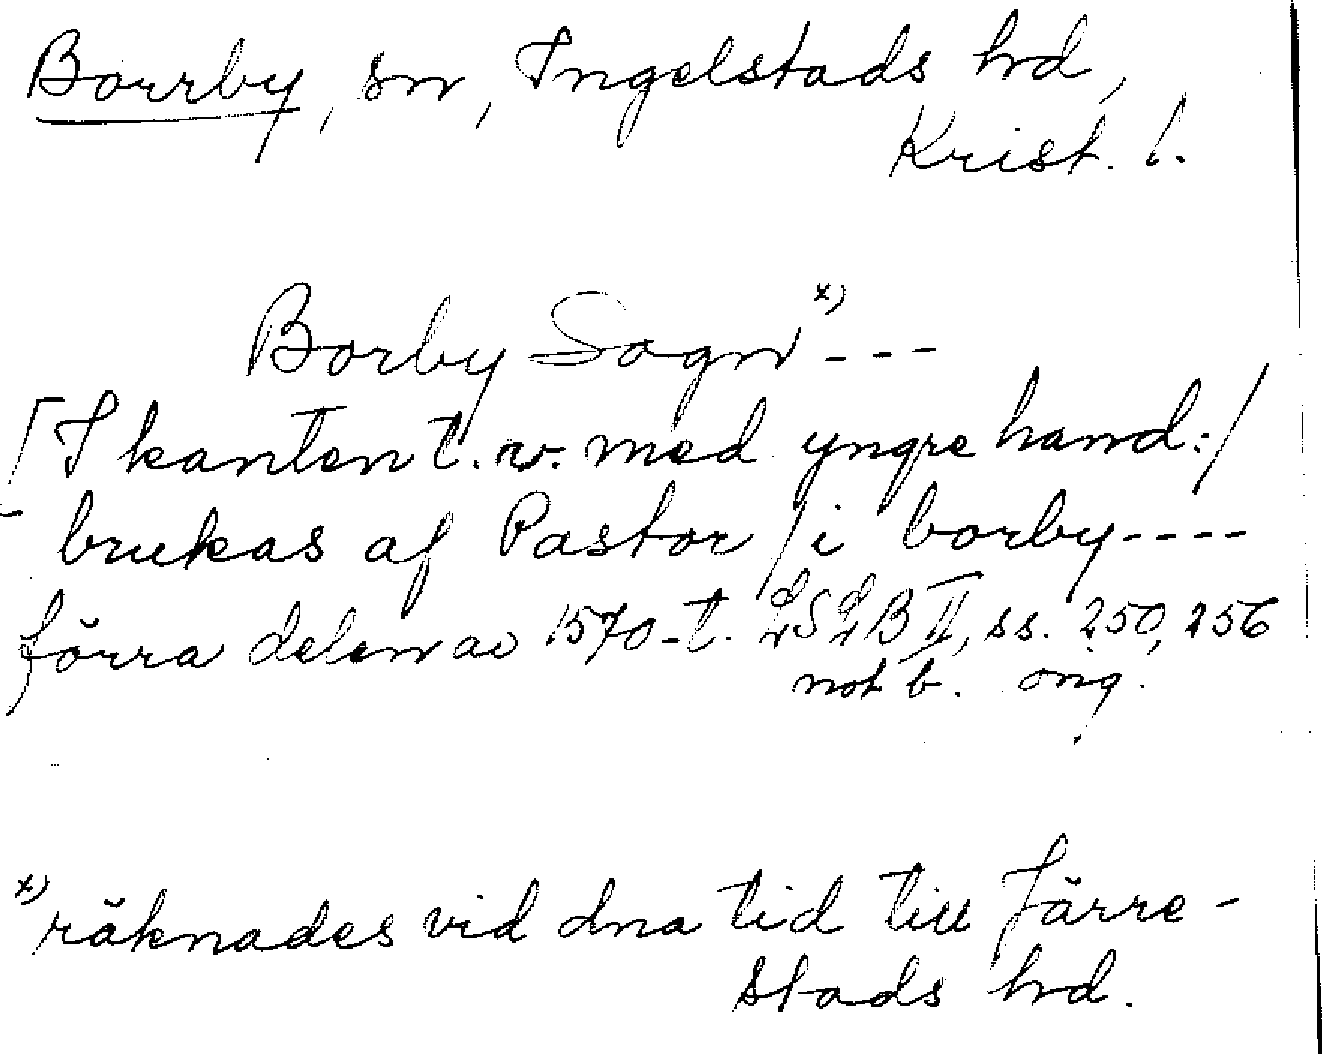 Borrby, sn, Ingelstads hrd,
Krist. l.
Borby Sogn x) - - -
[I kanten t. v. med yngre hand:/
brukas af Pastor / i borby - - - -
förra delen av 1570-t. LSLB II, ss. 250, 256
not b. orig.
x) räknades vid dna tid till Järre-
stads hrd.